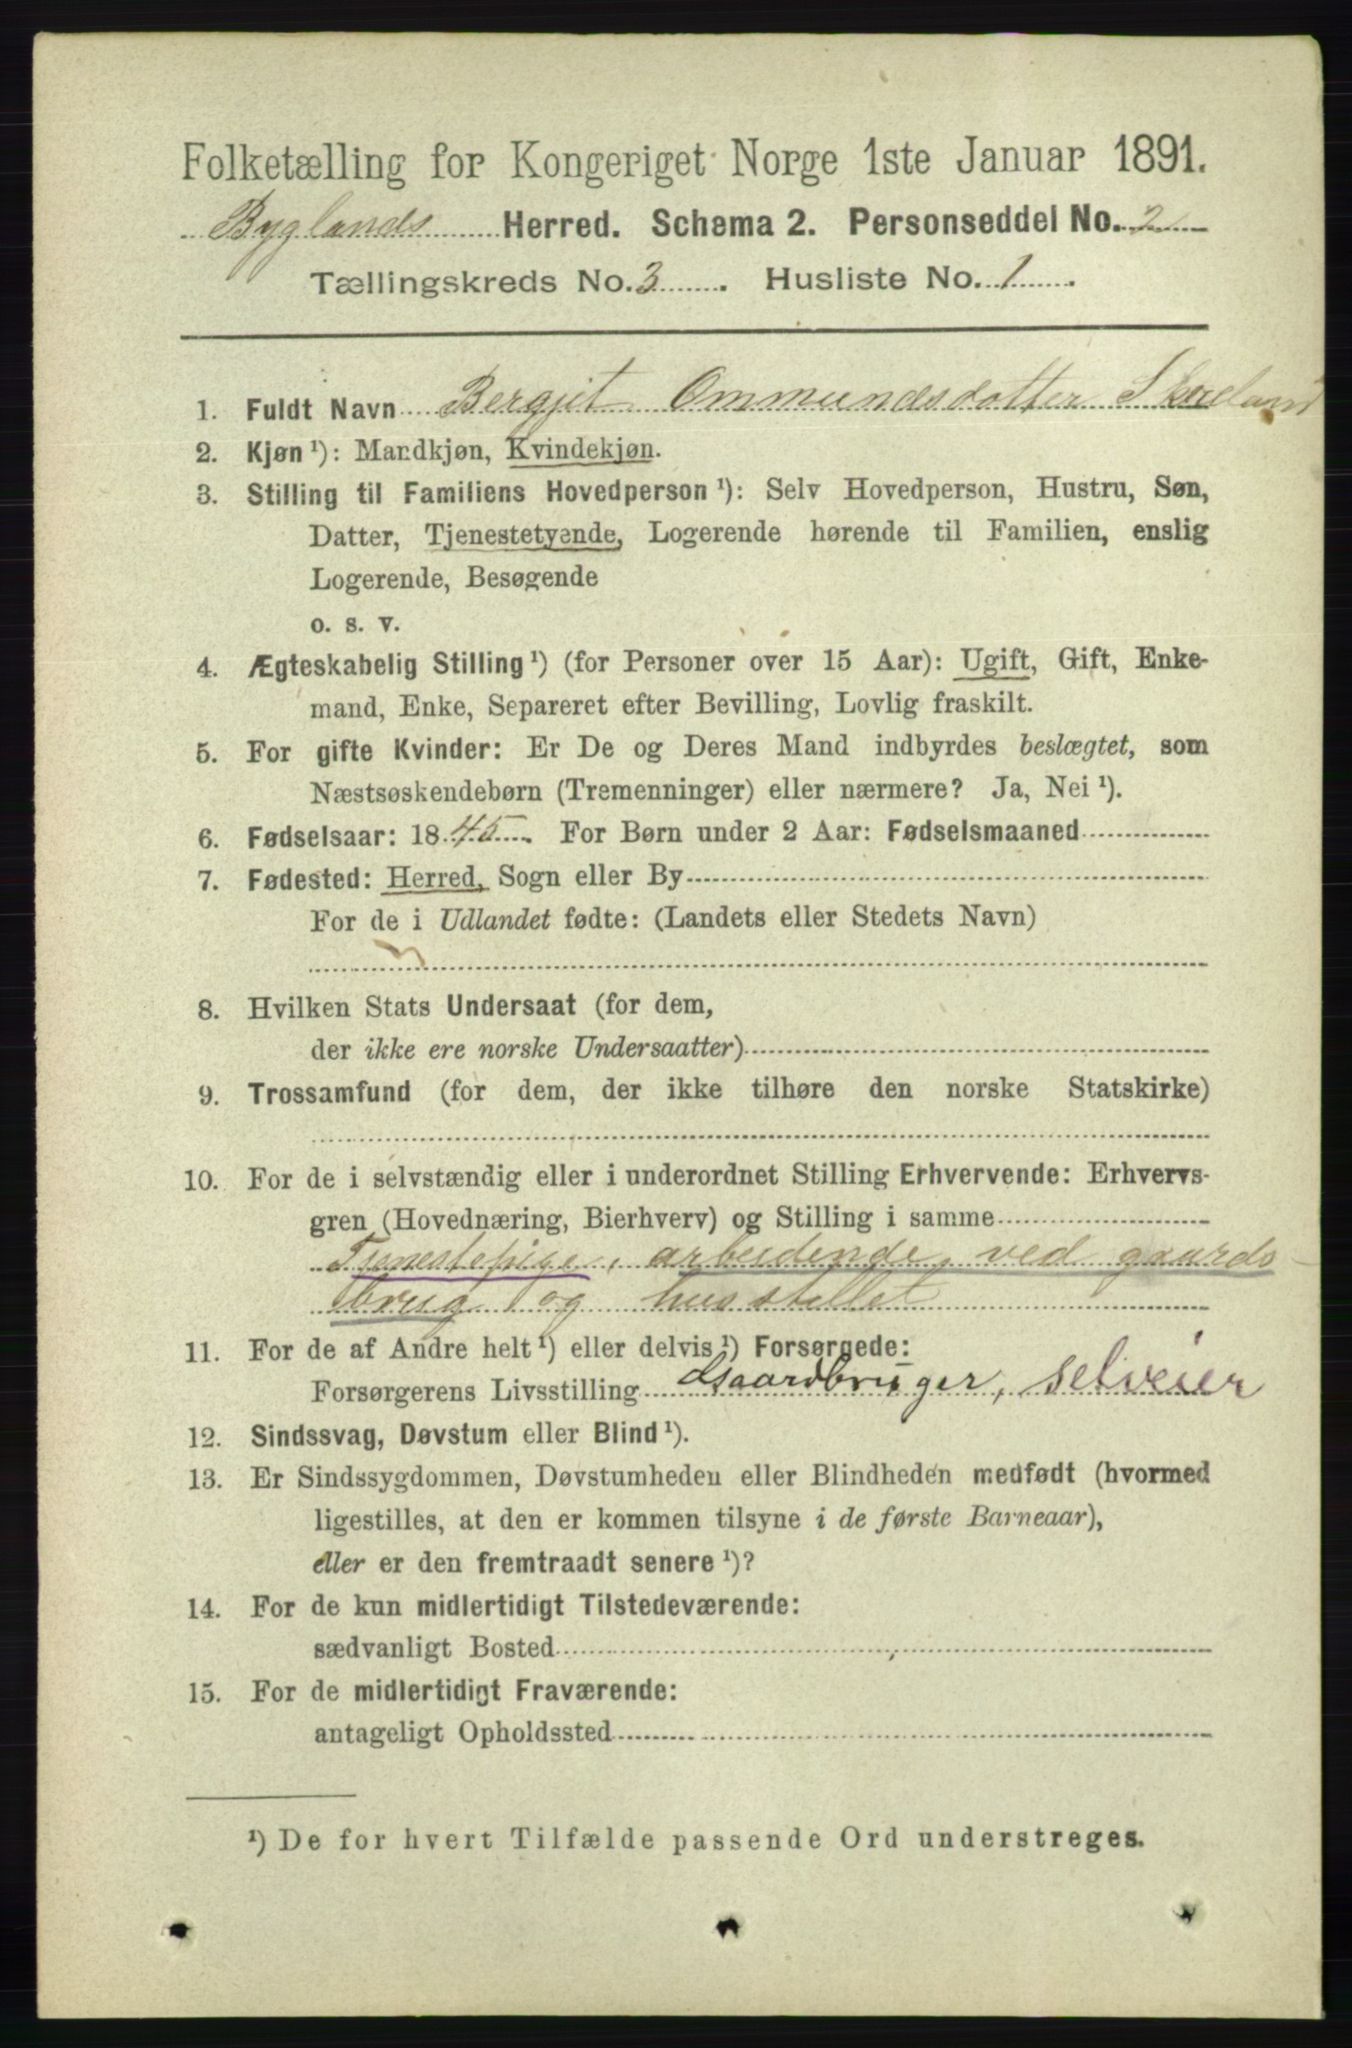 Folketælling for Kongeriget Norge 1ste Januar 1891.
Byglands Herred. Schema 2. Personseddel No. 2
Tællingskreds No. 3. Husliste No. 1.
1. Fuldt Navn Bergjit Ommundsdotter Skreland
2. Kjøn ¹): Mandkjøn, Kvindekjøn.
3. Stilling til Familiens Hovedperson ¹): Selv Hovedperson, Hustru, Søn,
Datter, Tjenestetyende, Logerende hørende til Familien, enslig
Logerende, Besøgende
o. s. v.
4. Ægteskabelig Stilling ¹) (for Personer over 15 Aar): Ugift, Gift, Enke-
mand, Enke, Separeret efter Bevilling, Lovlig fraskilt.
5. For gifte Kvinder: Er De og Deres Mand indbyrdes beslægtet, som
Næstsøskendebørn (Tremenninger) eller nærmere? Ja, Nei ¹).
6. Fødselsaar: 1845. For Børn under 2 Aar: Fødselsmaaned
7. Fødested: Herred, Sogn eller By
For de i Udlandet fødte: (Landets eller Stedets Navn)
8. Hvilken Stats Undersaat (for dem,
der ikke ere norske Undersaatter)
9. Trossamfund (for dem, der ikke tilhøre den norske Statskirke)
10. For de i selvstændig eller i underordnet Stilling Erhvervende: Erhvervs-
gren (Hovednæring, Bierhverv) og Stilling i samme
Tjenestepige, arbeidende ved gaards-
brug og husstellet
11. For de af Andre helt ¹) eller delvis ¹) Forsørgede:
Forsørgerens Livsstilling Gaardbruger, selveier
12. Sindssvag, Døvstum eller Blind ¹).
13. Er Sindssygdommen, Døvstumheden eller Blindheden medfødt (hvormed
ligestilles, at den er kommen tilsyne i de første Barneaar),
eller er den fremtraadt senere ¹)?
14. For de kun midlertidigt Tilstedeværende:
sædvanligt Bosted
15. For de midlertidigt Fraværende:
antageligt Opholdssted
¹) De for hvert Tilfælde passende Ord understreges.